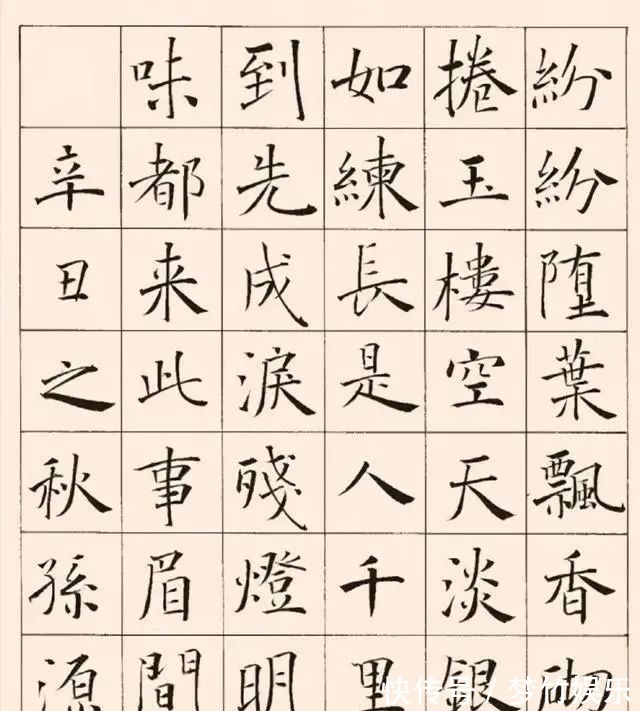 紛紛堕葉飄香砌
捲玉樓空天淡銀
如練長是人千里
到先成淚殘燈明
味都来此事眉間
辛丑之秋孫源
快传号 / 梦竹娱乐